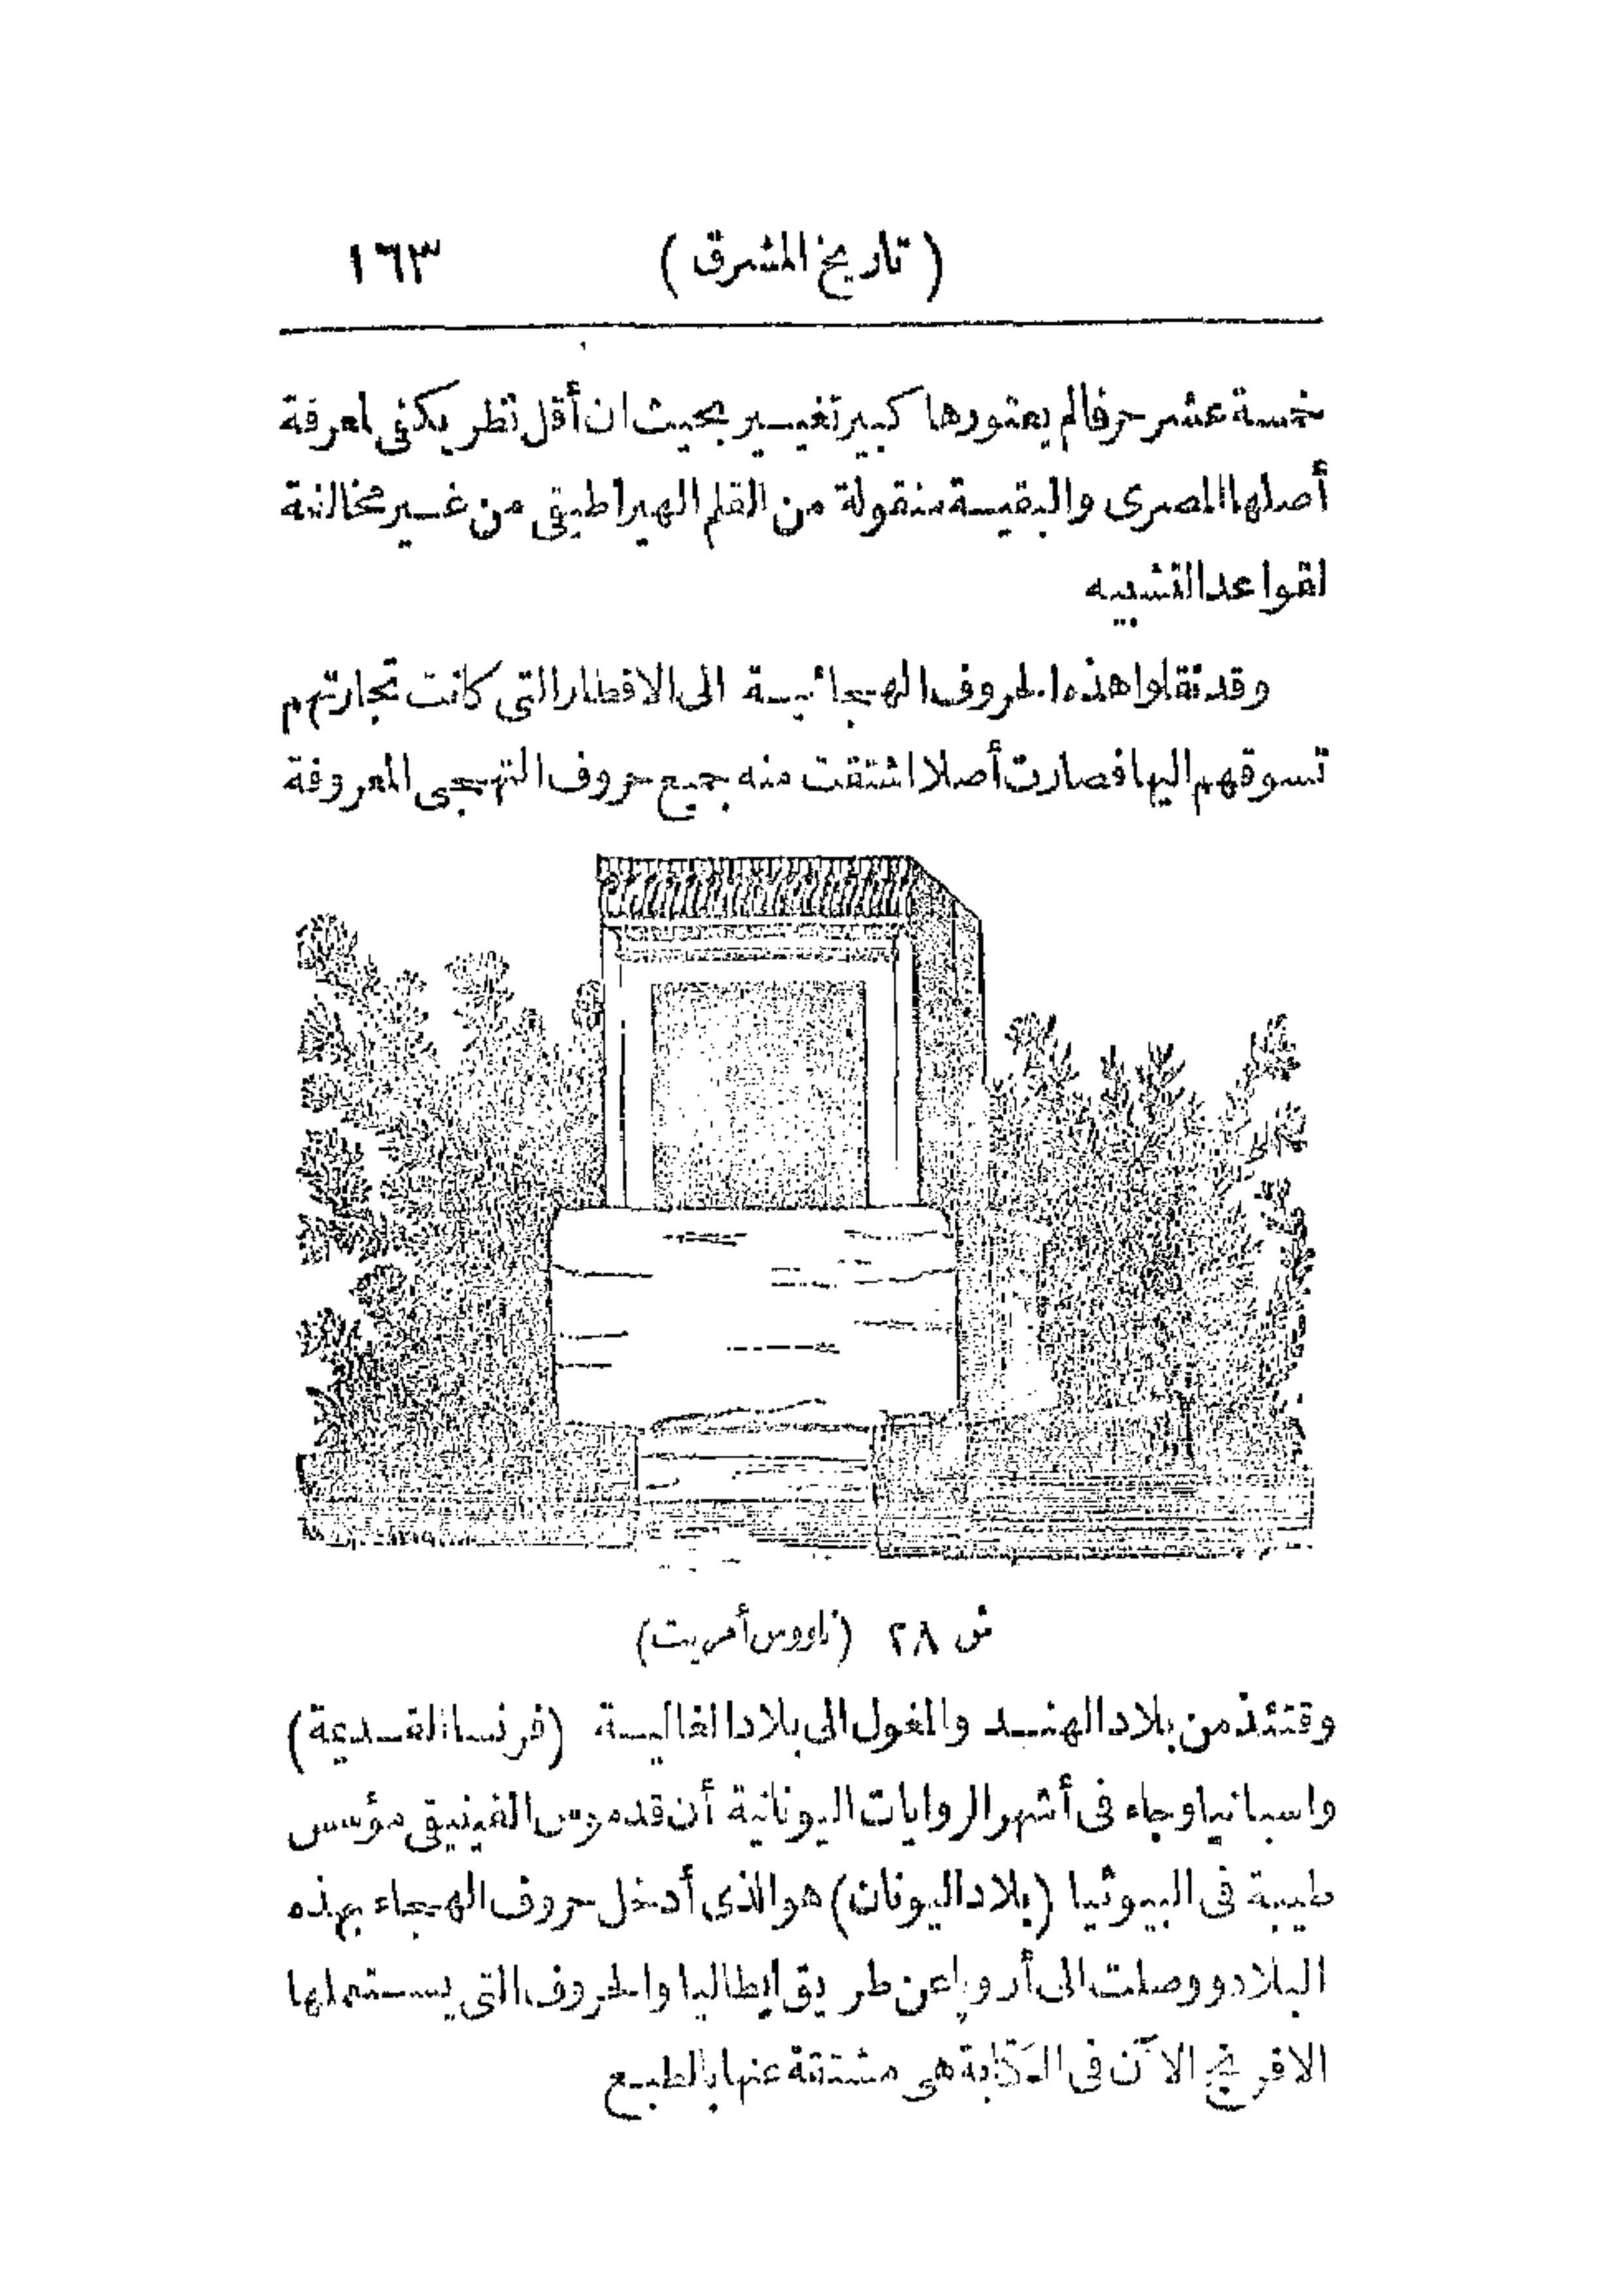 ( تاريخ المشرق ) ١٦٣
خمسة عشر حرفا لم يعتورها كبير تغيير بحيث ان أقل نظر يكفى لمعرفة
أصلها المصرى والبقية منقولة من القلم الهيراطيقى من غير مخالفة
لقواعد التشبيه
وقد نقلوا هذه الحروف الهجائية الى الاقطار التى كانت تجارتهم
تسوقهم اليها فصارت أصلا اشتقت منه جميع حروف التهجى المعروفة
ش ٢٨ (ناووس أمريت)
وقتئذ من بلاد الهند والمغول الى بلاد الغالية (فرنسا القديمة)
واسبانيا وجاء فى أشهر الروايات اليونانية أن قدموس الفينيقى مؤسس
طيبة فى البيوثيا (بلاد اليونان) هو الذى أدخل حروف الهجاء بهذه
البلاد ووصلت الى أروپا عن طريق ايطاليا والحروف التى يستعملها
الافرنج الآن فى الكتابة هى مشتقة عنها بالطبع